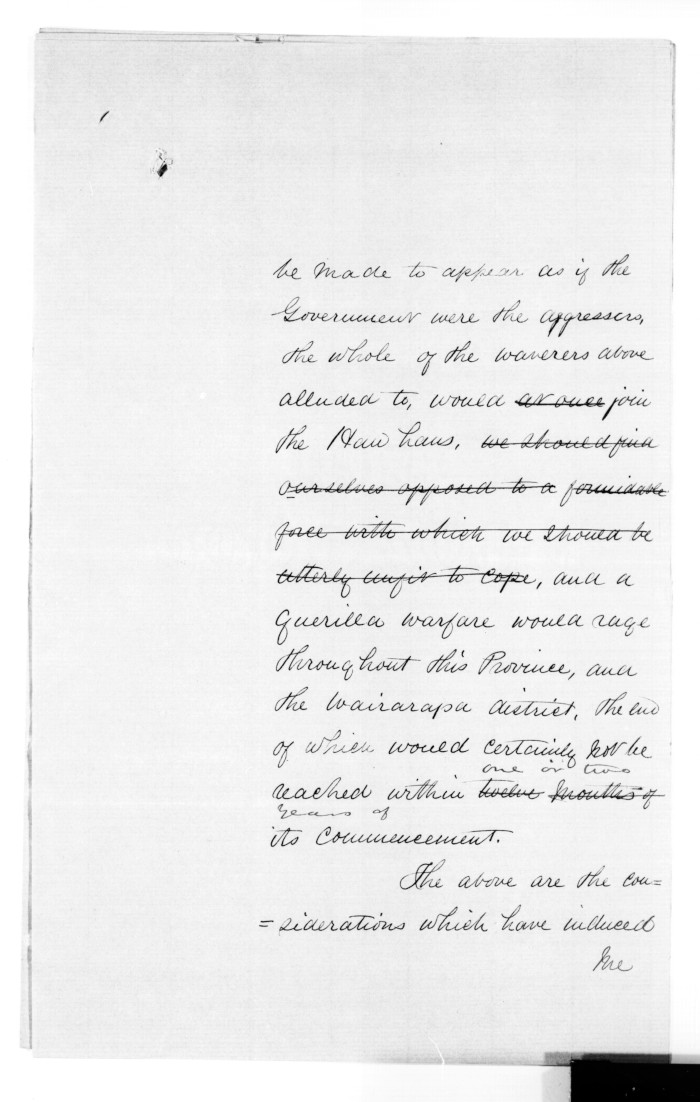 be made to appear as if the
Government were the aggressers,
the whole of the waverers above
alluded to, would at once join
the Hau haus, we should find
ourselves opposed to a formidable
force with which we should be
utterly unfit to cope, and a
Guerilla warfare would rage
throughout this Province, and
the Wairarapa district, the end
of which would certainly not be
one or two
reached within twelve months of
years of
its commencement.
The above are the con=
=siderations which have induced
me